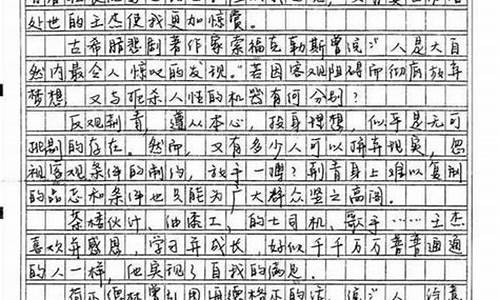 处世的王杰使我更加惊赏。
古希腊悲剧著作家索福克勒斯曾说:“人是大自
然内最令人惊叹的发现。”若因客观阻碍而彻底放弃
梦想,又与扼杀人性的机器有何分别?
反观荆青,遵从本心,投身理想,似乎是无可
挑剔的存在。然而,又有多少人可以摒弃现实,忽
视客观条件的制约,放手一搏?荆青身上难以复制
的品志和条件也只能为广大群众竖之高阁。
茶楼伙计、油漆工、的士司机、歌手……王杰
喜欢并感恩,学习并成长,好似千千万万普普通通
的人一样,他实现了自我的满足。